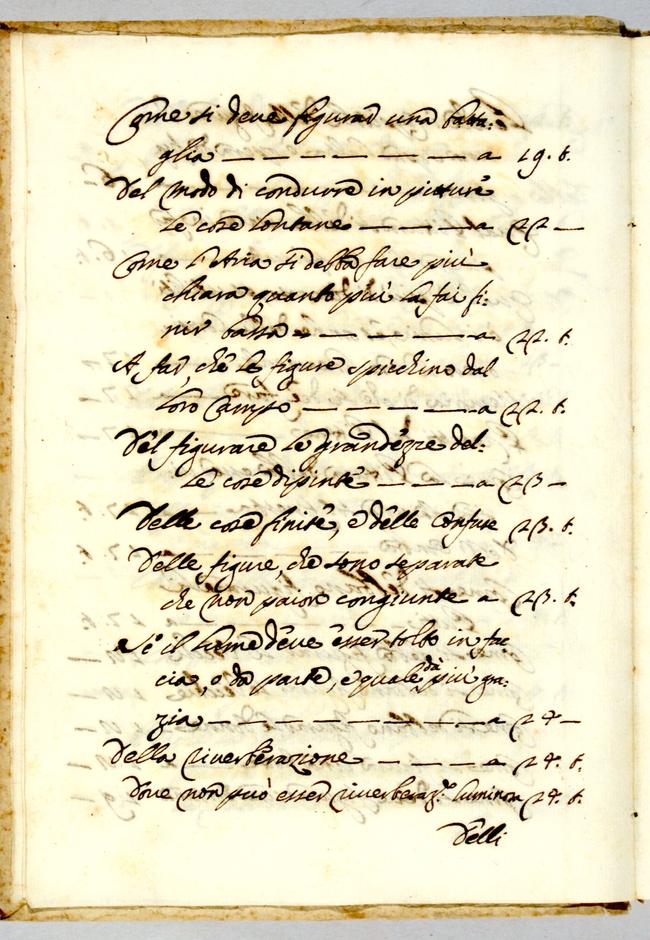 Come si deve figurar una batta:
glia — — — — — — — a 19. t.
Del modo di condurre in pitture
le cose lontane — — — — a 22 —
Come l'Aria si debba fare più
chiara quanto più la fai fi:
nir bassa — — — — — a 22. t.
A far, che le figure spicchino dal
loro campo — — — — — a 22. t.
Del figurare le grandezze del:
le cose dipinte — — — a 23 —
Delle cose finite, e delle confuse 23. t.
Delle figure, che sono separate
che non paion congiunte a 23. t.
Se il lume deve esser tolto in fac
cia, o da parte, e quale dà più gra:
zia — — — — — — — a 24 —
Della riverberazione — — — a 24. t.
Dove non può esser riverberaz.e luminosa 24. t.
Delli